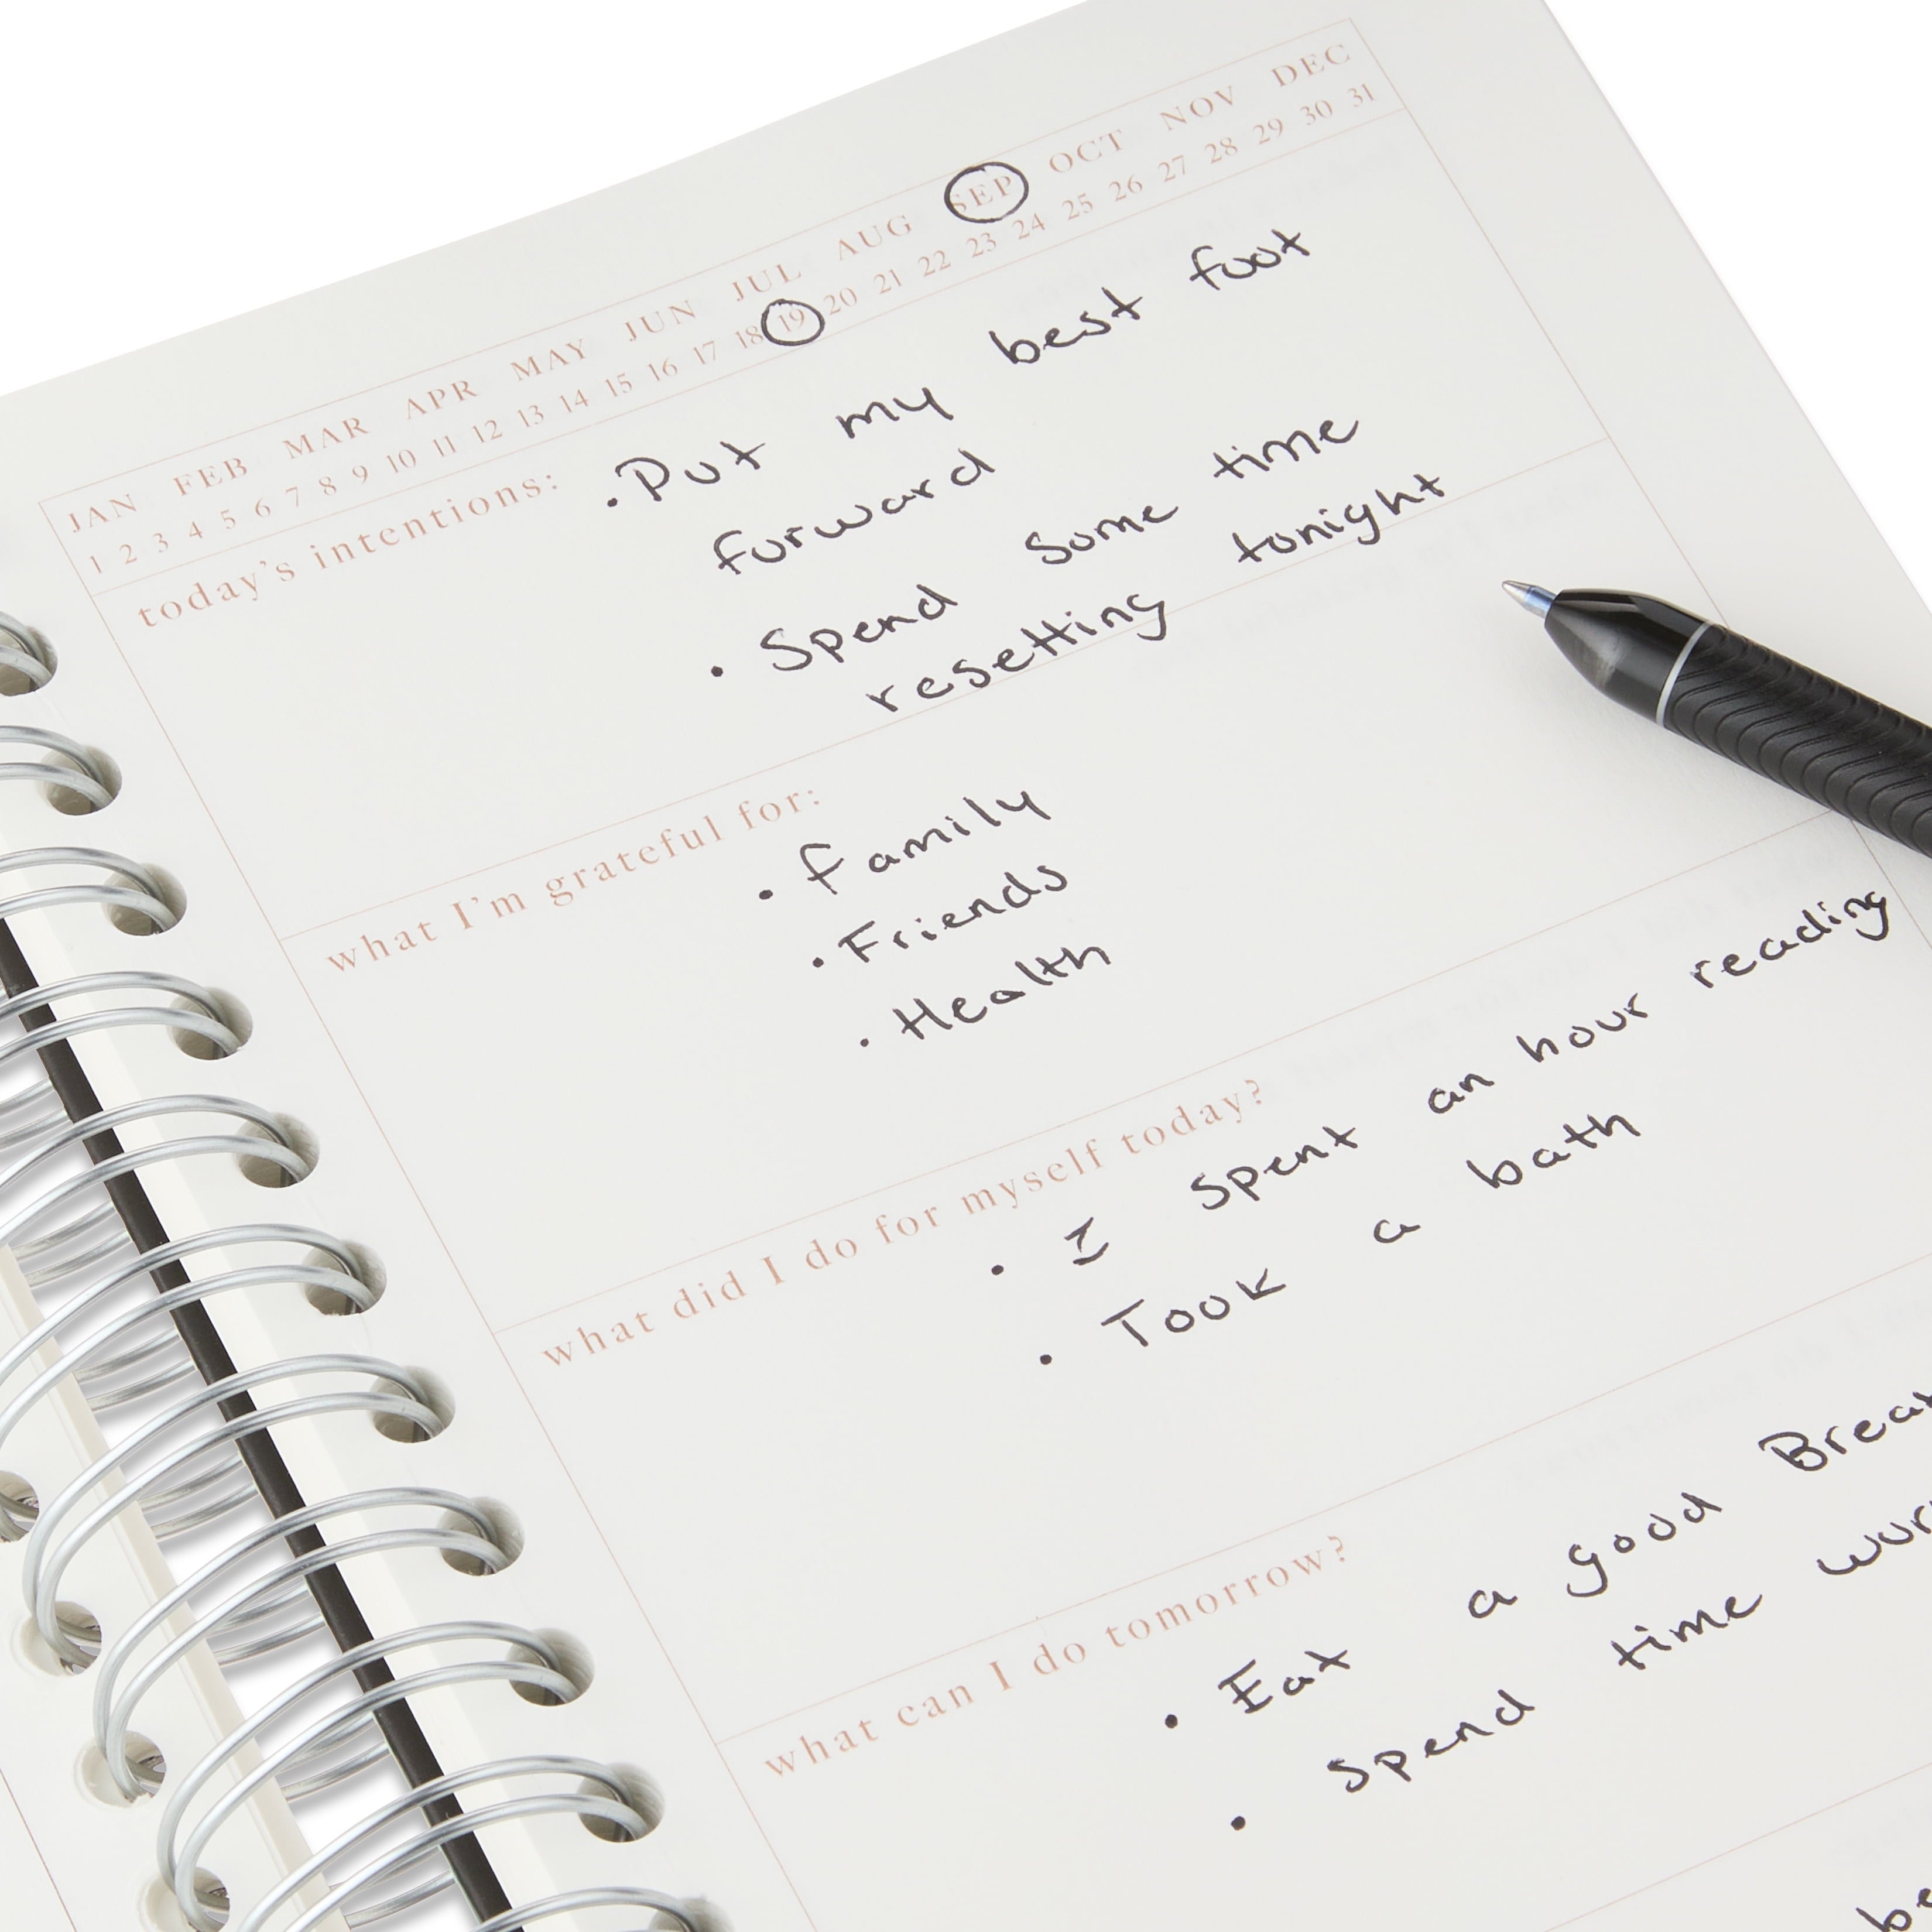 JAN FEB MAR APR MAY JUN JUL AUG SEP OCT NOV DEC
1 2 3 4 5 6 7 8 9 10 11 12 13 14 15 16 17 18 19 20 21 22 23 24 25 26 27 28 29 30 31
today's intentions: • Put my best foot
forward
• Spend some time
resetting tonight
what I'm grateful for:
• family
• Friends
• Health
what did I do for myself today?
• I spent an hour reading
• Took a bath
what can I do tomorrow?
• Eat a good
• Spend time